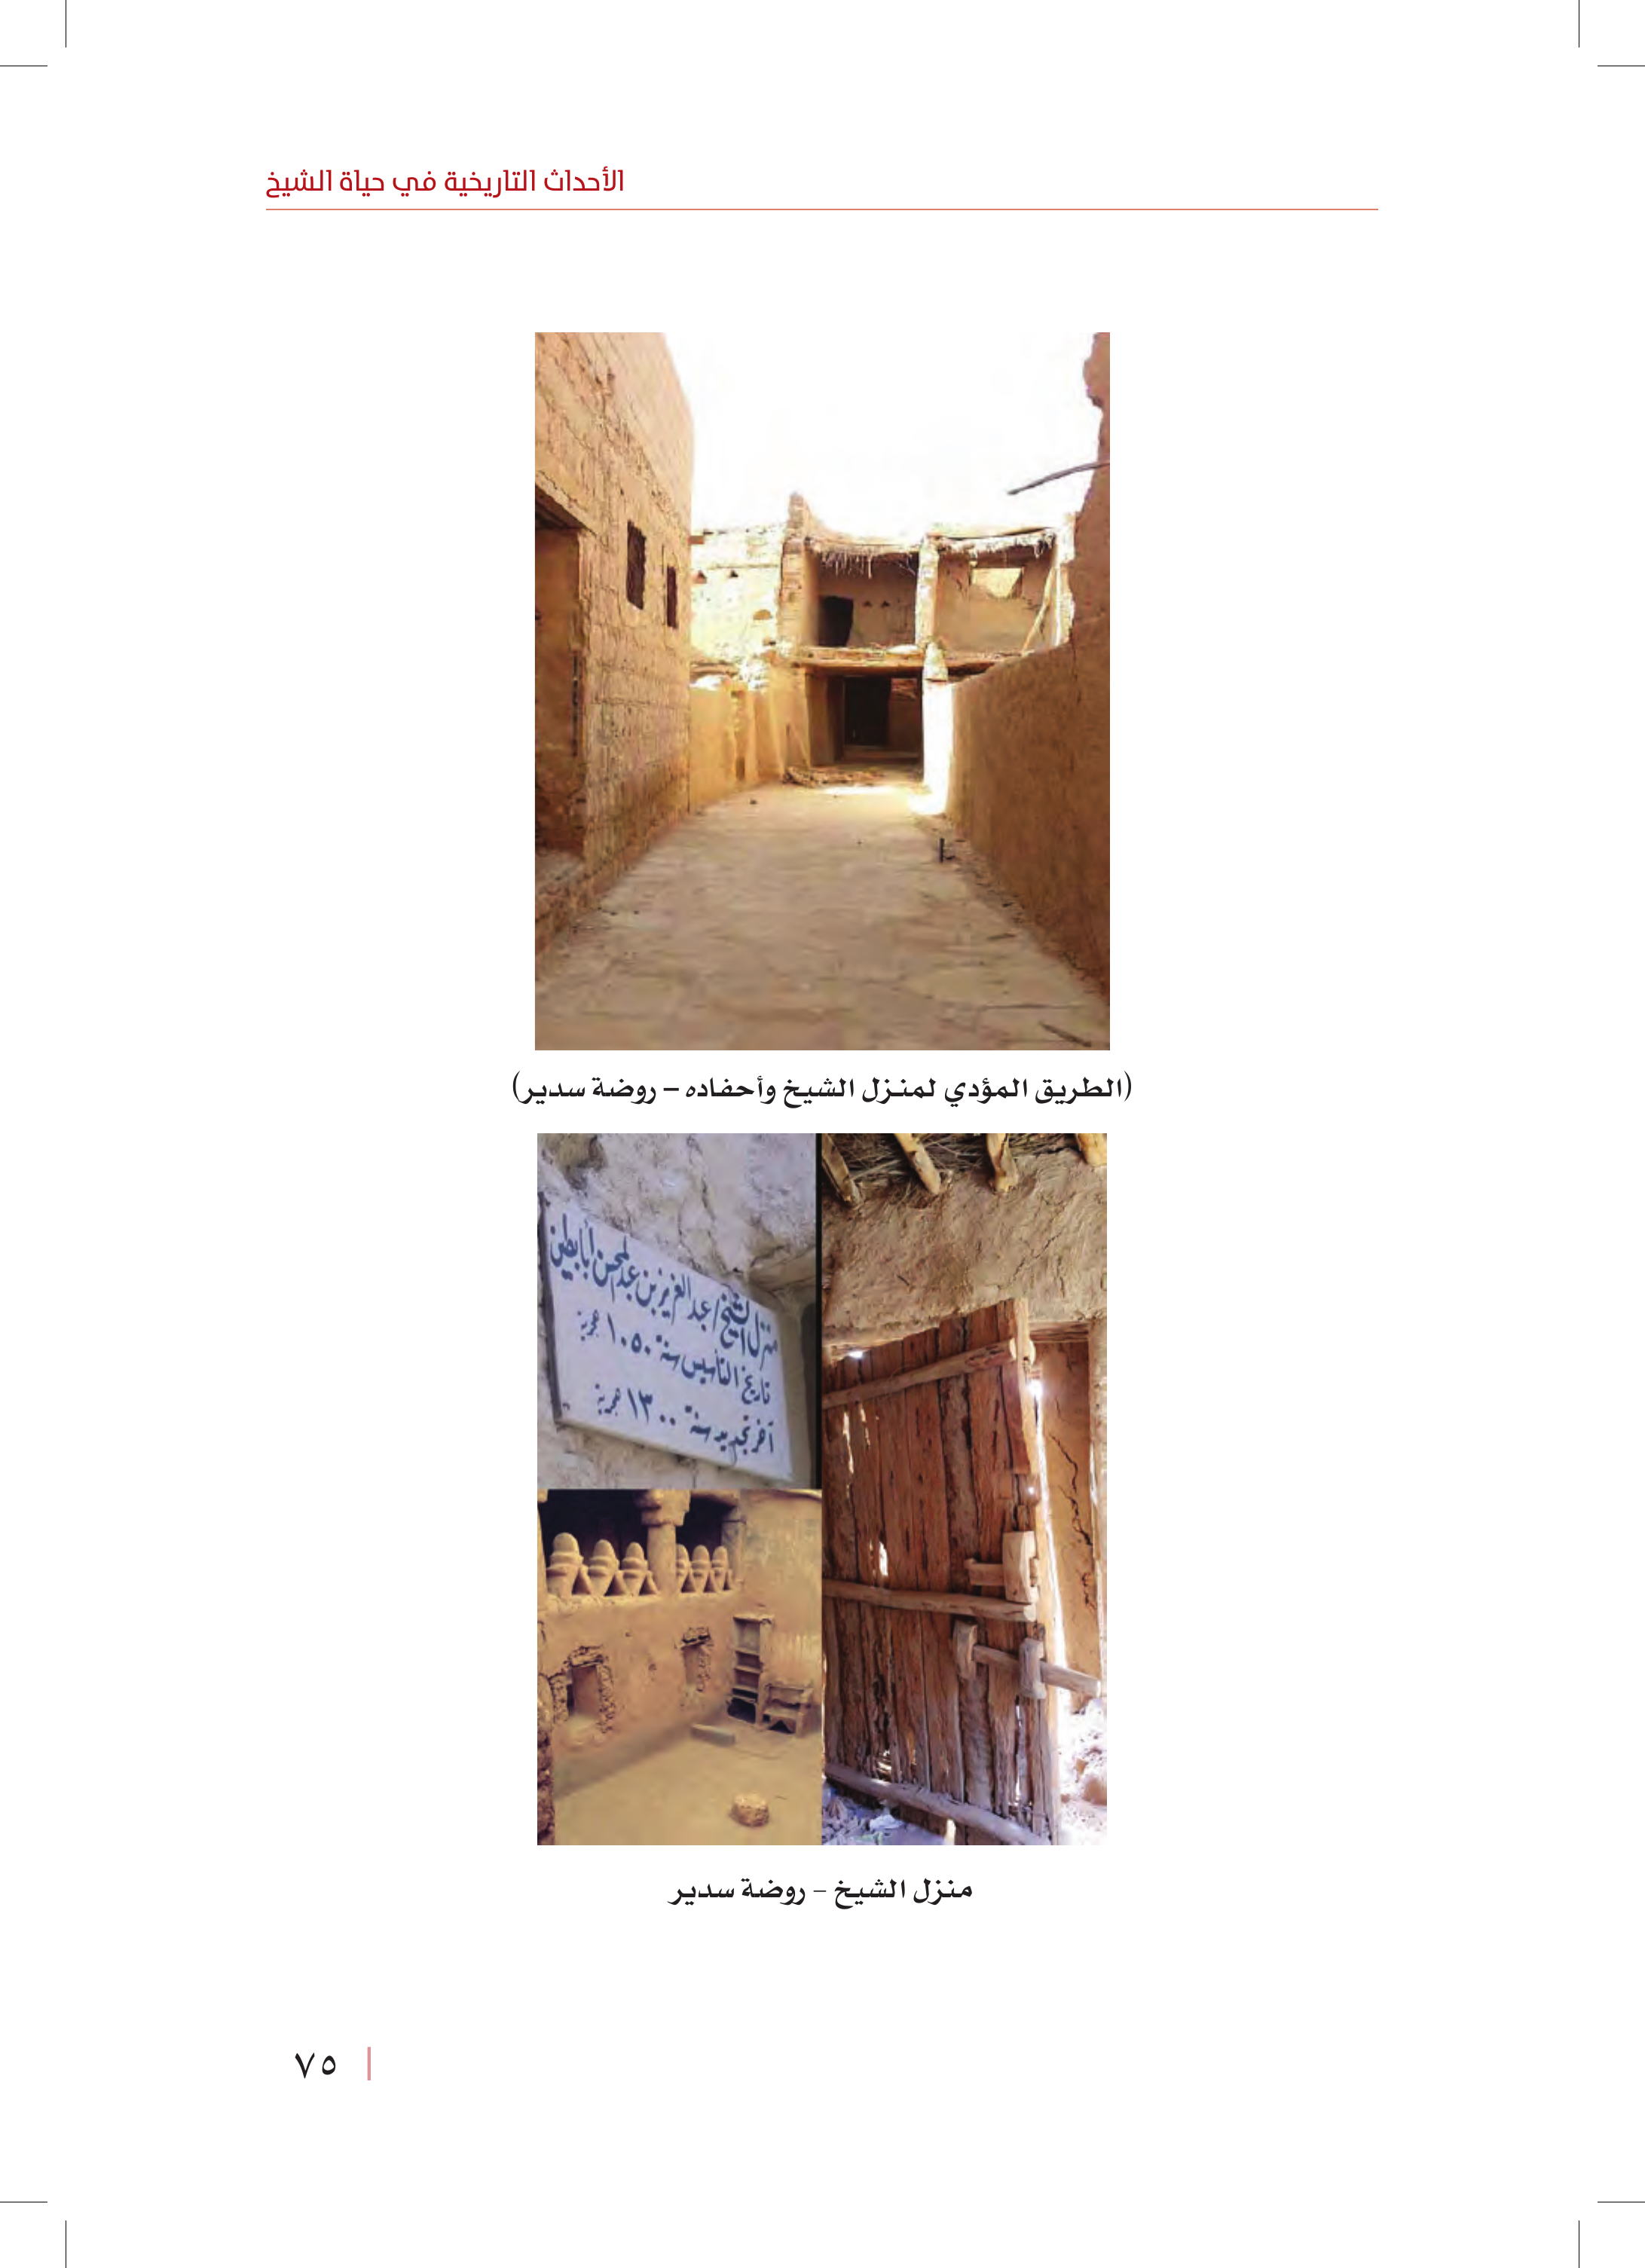 الأحداث التاريخية في حياة الشيخ
(الطريق المؤدي لمنزل الشيخ وأحفاده – روضة سدير)
منزل الشيخ / عبد العزيز بن عبد المحسن أبابطين
تاريخ التأسيس سنة ١٠٥٠ هجرية
آخر تجديد سنة ١٣٠٠ هجرية
منزل الشيخ – روضة سدير
٧٥